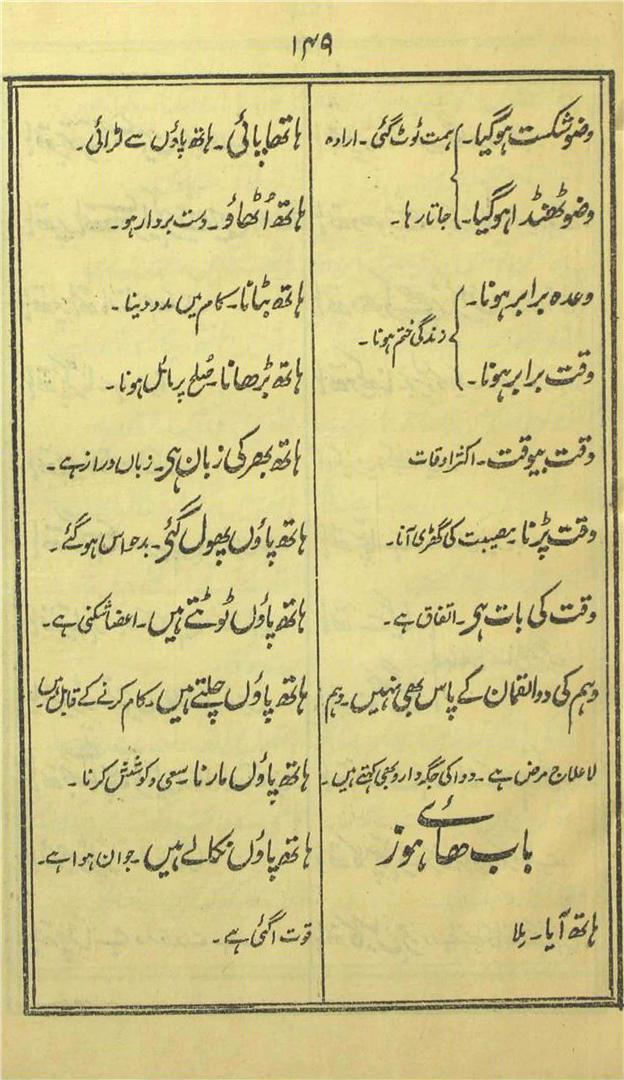 ۱۴۹
وضو شکست ہوگیا۔ } ہمت ٹوٹ گئی۔ ارادہ
وضو ٹھنڈا ہوگیا۔ } جاتا رہا۔
وعدہ برابر ہونا۔
} زندگی ختم ہونا۔
وقت برابر ہونا۔
وقت بیوقت۔ اکثر اوقات
وقت پڑنا۔ مصیبت کی گھڑی آنا۔
وقت کی بات ہی۔ اتفاق ہے۔
وہم کی دوا لقمان کے پاس بھی نہیں۔ وہم
لاعلاج مرض ہے۔ دوا کی جگہ دارو بھی کہتے ہیں۔
باب ھائے ہوز
ہاتھ آیا۔ ملا
ہاتھا پائی۔ ہاتھ پاؤں سے لڑائی۔
ہاتھ اُٹھاؤ۔ دست بردار ہو۔
ہاتھ بٹانا۔ کام میں مدد دینا۔
ہاتھ بڑھانا۔ صُلح پر مائل ہونا۔
ہاتھ بھر کی زبان ہی۔ زباں دراز ہے۔
ہاتھ پاؤں پھول گئی۔ بدحواس ہو گئے۔
ہاتھ پاؤں ٹوٹتے ہیں۔ اعضا شکنی ہے۔
ہاتھ پاؤں چلتے ہیں۔ کام کرنے کے قابل ہیں۔
ہاتھ پاؤں مارنا۔ سعی و کوشش کرنا۔
ہاتھ پاؤں نکالے ہیں۔ جوان ہوا ہے۔
قوت آگئی ہے۔